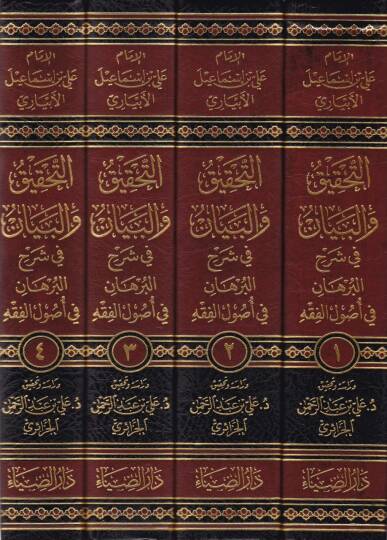 الإمام
علي بن إسماعيل
الأبياري
التحقيق
والبيان
في شرح
البرهان
في أصول الفقه
١
دراسة وتحقيق
د. علي بن عبد الرحمن
الجزائري
دار الضياء
الإمام
علي بن إسماعيل
الأبياري
التحقيق
والبيان
في شرح
البرهان
في أصول الفقه
٢
دراسة وتحقيق
د. علي بن عبد الرحمن
الجزائري
دار الضياء
الإمام
علي بن إسماعيل
الأبياري
التحقيق
والبيان
في شرح
البرهان
في أصول الفقه
٣
دراسة وتحقيق
د. علي بن عبد الرحمن
الجزائري
دار الضياء
الإمام
علي بن إسماعيل
الأبياري
التحقيق
والبيان
في شرح
البرهان
في أصول الفقه
٤
دراسة وتحقيق
د. علي بن عبد الرحمن
الجزائري
دار الضياء